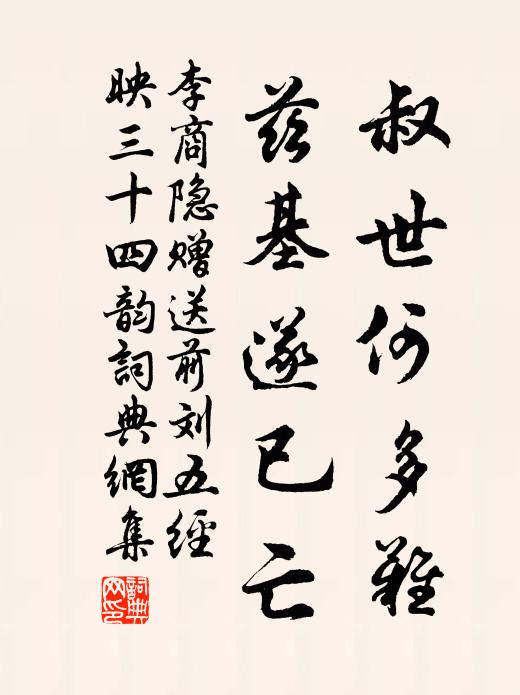 叔世何多難
茲基遂已亡
李商隐赠送前刘五經
映三十四韵詞典網集
詞典网印